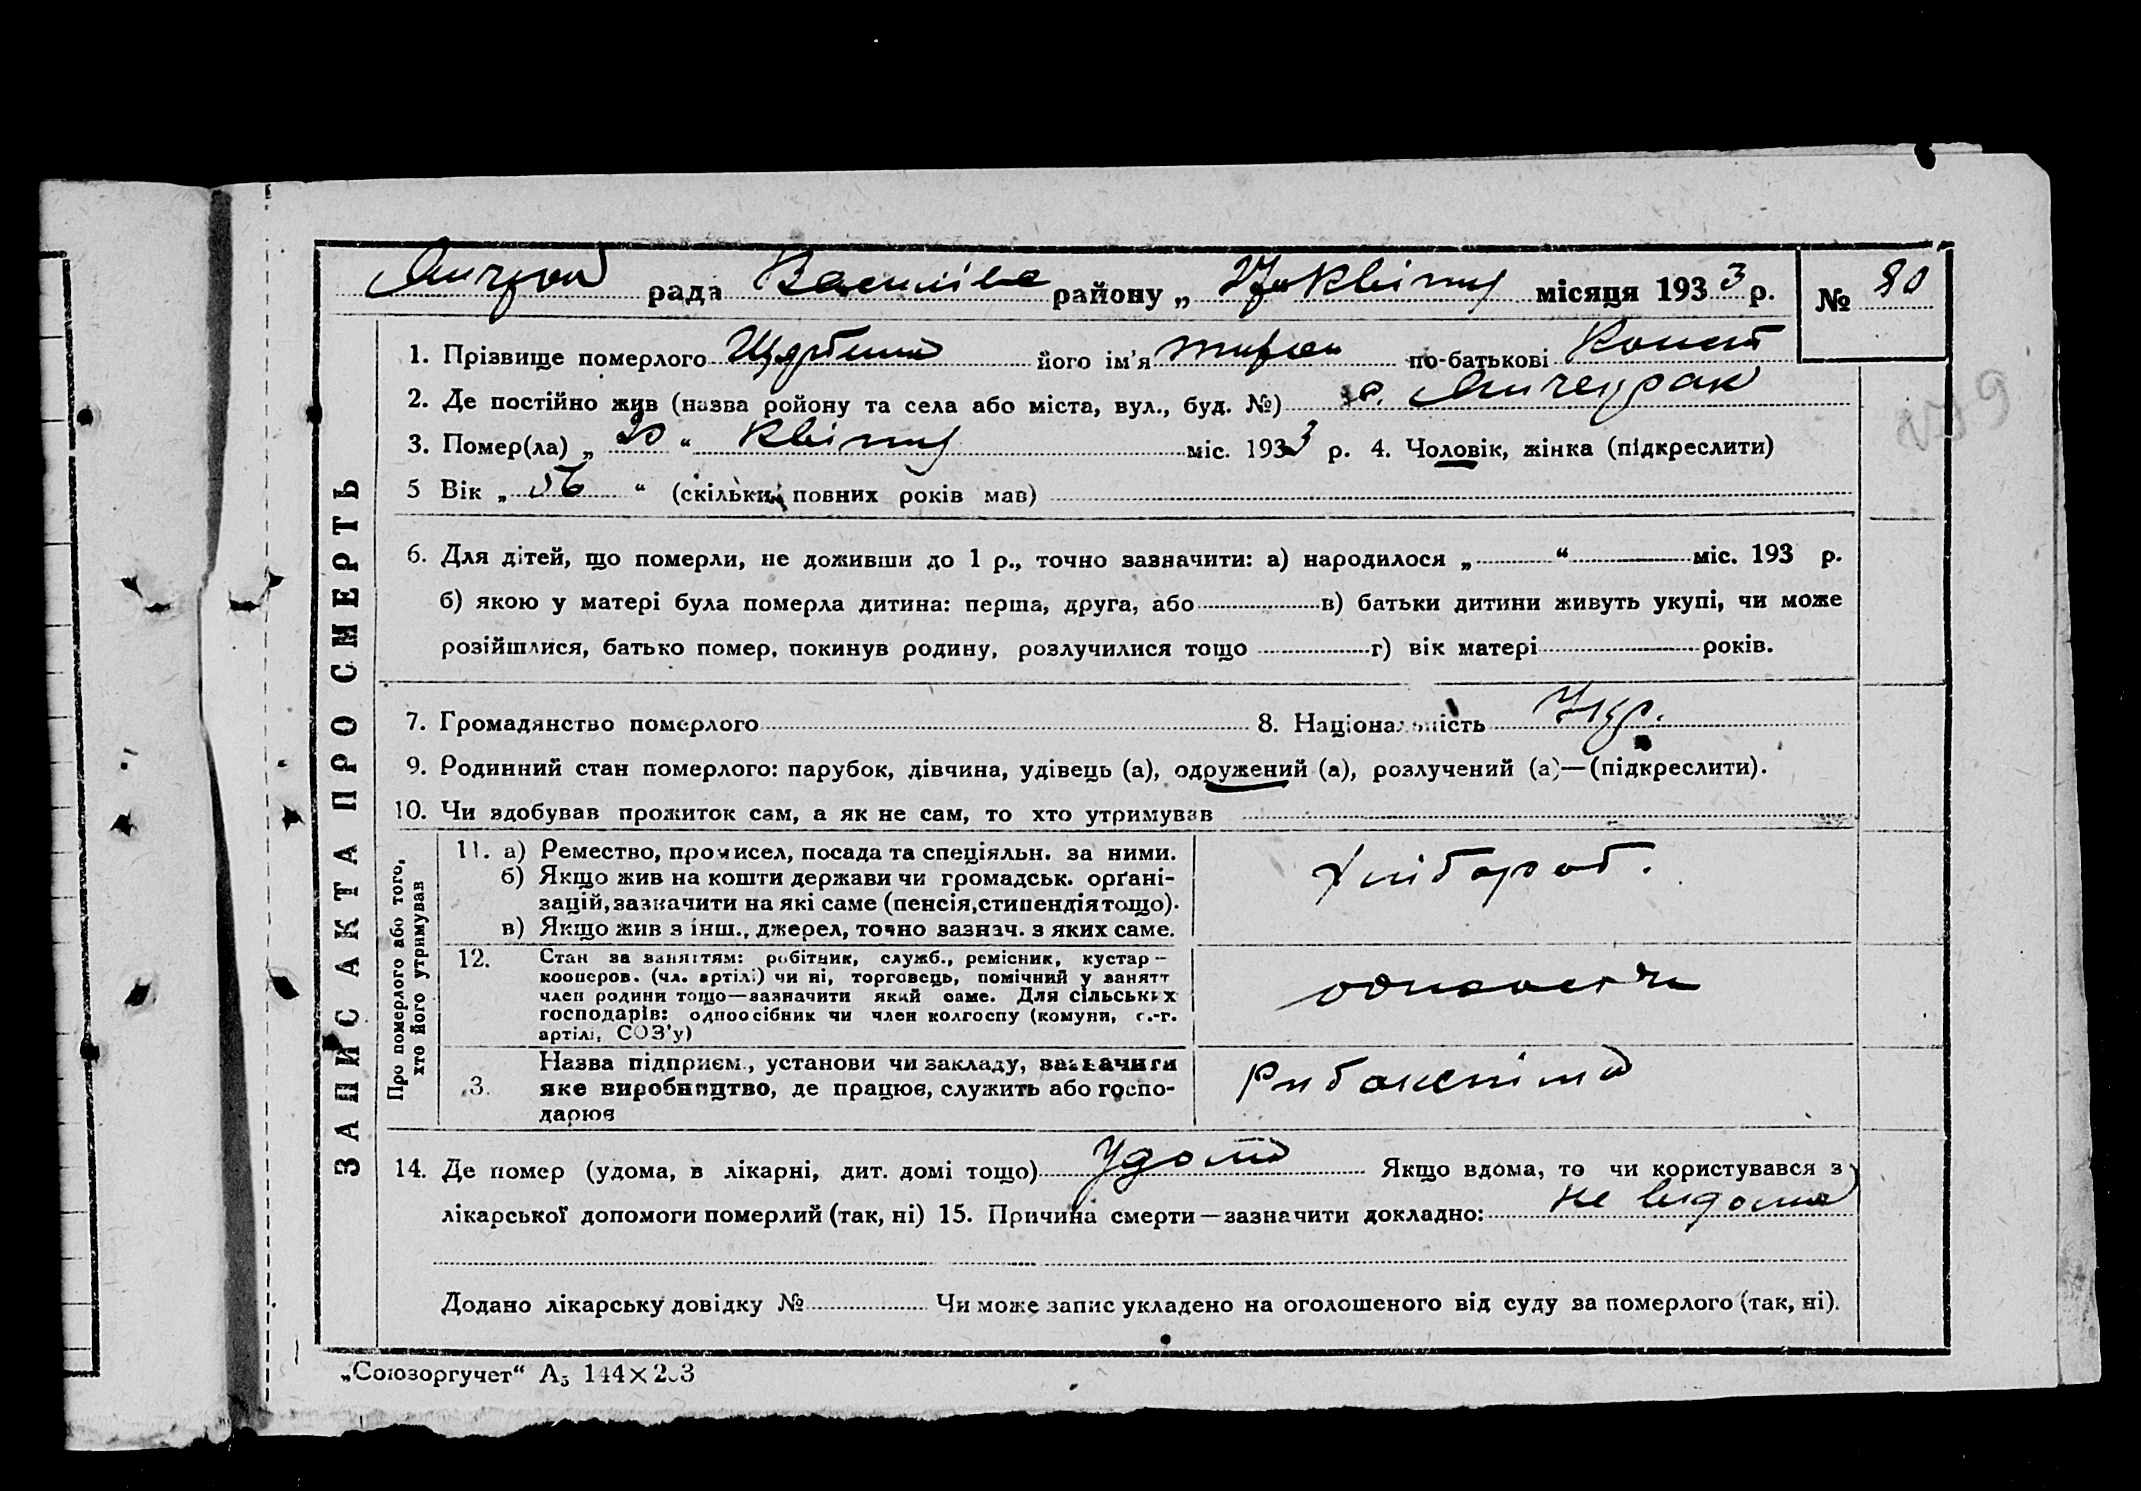 рада Василівс району „ 23 " квітня місяця 1933 р. № 80
1. Прізвище померлого Щербина його ім'я по-батькові Конст
2. Де постійно жив (назва ройону та села або міста, вул., буд. №) с.
3. Помер(ла) „ 20 " квітня міс. 1933 р. 4. Чоловік, жінка (підкреслити)
5 Вік „ 56 " (скільки повних років мав)
6. Для дітей, що померли, не доживши до 1 р., точно зазначити: а) народилося „ " міс. 193 р.
б) якою у матері була померла дитина: перша, друга, або в) батьки дитини живуть укупі, чи може
розійшлися, батько помер, покинув родину, розлучилися тощо г) вік матері років.
7. Громадянство померлого 8. Національність Укр.
9. Родинний стан померлого: парубок, дівчина, удівець (а), одружений (а), розлучений (а)—(підкреслити).
10. Чи здобував прожиток сам, а як не сам, то хто утримував
ЗАПИС АКТА ПРО СМЕРТЬ
Про померлого або того,
хто його утримував
11. а) Ремество, промисел, посада та спеціяльн. за ними.
б) Якщо жив на кошти держави чи громадськ. орґані-
зацій, зазначити на які саме (пенсія, стипендія тощо).
в) Якщо жив з інш., джерел, точно зазнач. з яких саме.
Хлібороб.
12. Стан за заняттям: робітник, служб., ремісник, кустар-
кооперов. (чл. артілі) чи ні, торговець, помічний у занятт
член родини тощо—зазначити який саме. Для сільських
господарів: одноосібник чи член колгоспу (комуни, с.-г.
артілі, СОЗ'у)
13. Назва підприєм., установи чи закладу, зазначити
яке виробництво, де працює, служить або госпо-
дарює
14. Де помер (удома, в лікарні, дит. домі тощо) удома Якщо вдома, то чи користувався з
лікарської допомоги померлий (так, ні) 15. Причина смерти—зазначити докладно: не відома
Додано лікарську довідку № Чи може запис укладено на оголошеного від суду за померлого (так, ні).
„Союзоргучет" А5 144×203